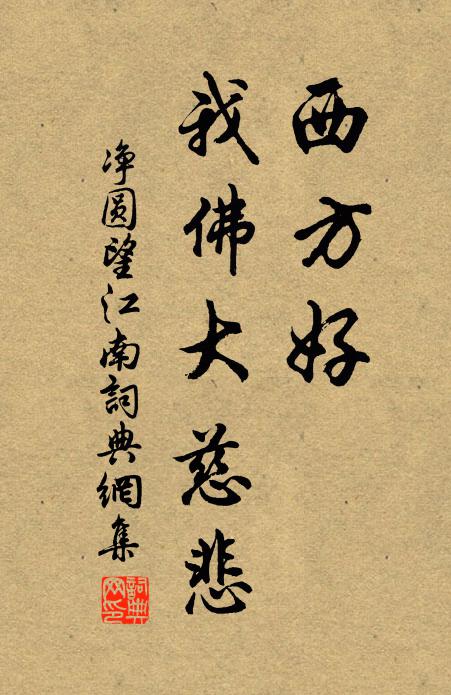 西方好
我佛大慈悲
净圆望江南詞典網集
詞典网印